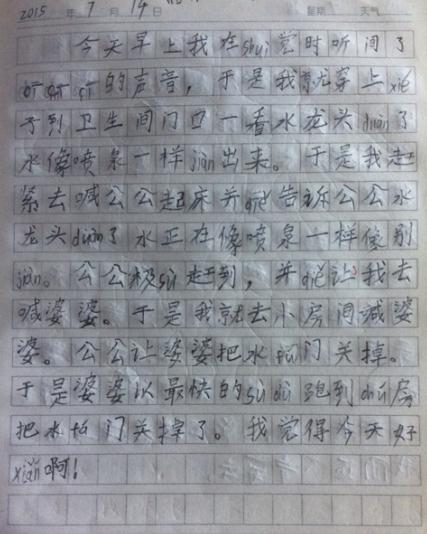 2015 年 7 月 14 日 星期 天气
今天早上我在shuì觉时听间了
的声音，于是我就穿上xié
子到卫生间门口一看水龙头duàn了
水像喷泉一样jiàn出来。于是我赶
紧去喊公公起床并qiě告诉公公水
龙头duàn了水正在像喷泉一样像别
jiàn。公公极sù赶到，并qiě让我去
喊婆婆。于是我就去小房间喊婆
婆。公公让婆婆把水fá门关掉。
于是婆婆以最快的sù dù跑到chú房
把水fá门关掉了。我觉得今天好
xiǎn啊！